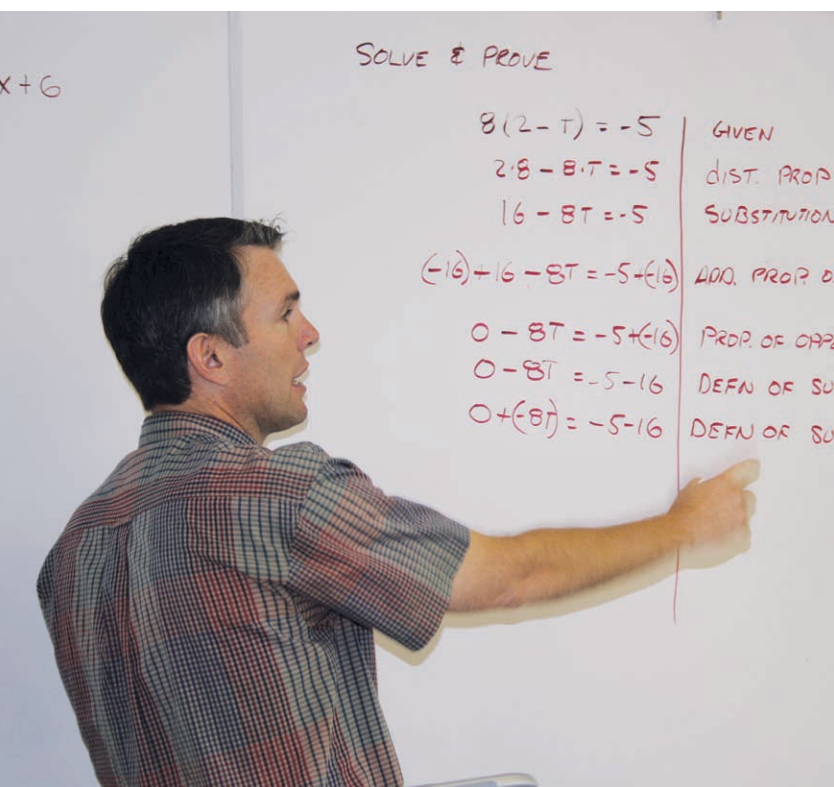 x+6
SOLVE & PROVE
8(2-T) = -5 GIVEN
2·8 - 8·T = -5 dIST. PROP
16 - 8T = -5 SUBSTITUTION
(-16)+16 - 8T = -5+(-16) ADD. PROP. O
0 - 8T = -5+(-16) PROP. OF OPPO
0 - 8T = -5-16 DEFN OF SU
0+(-8T) = -5-16 DEFN OF SU